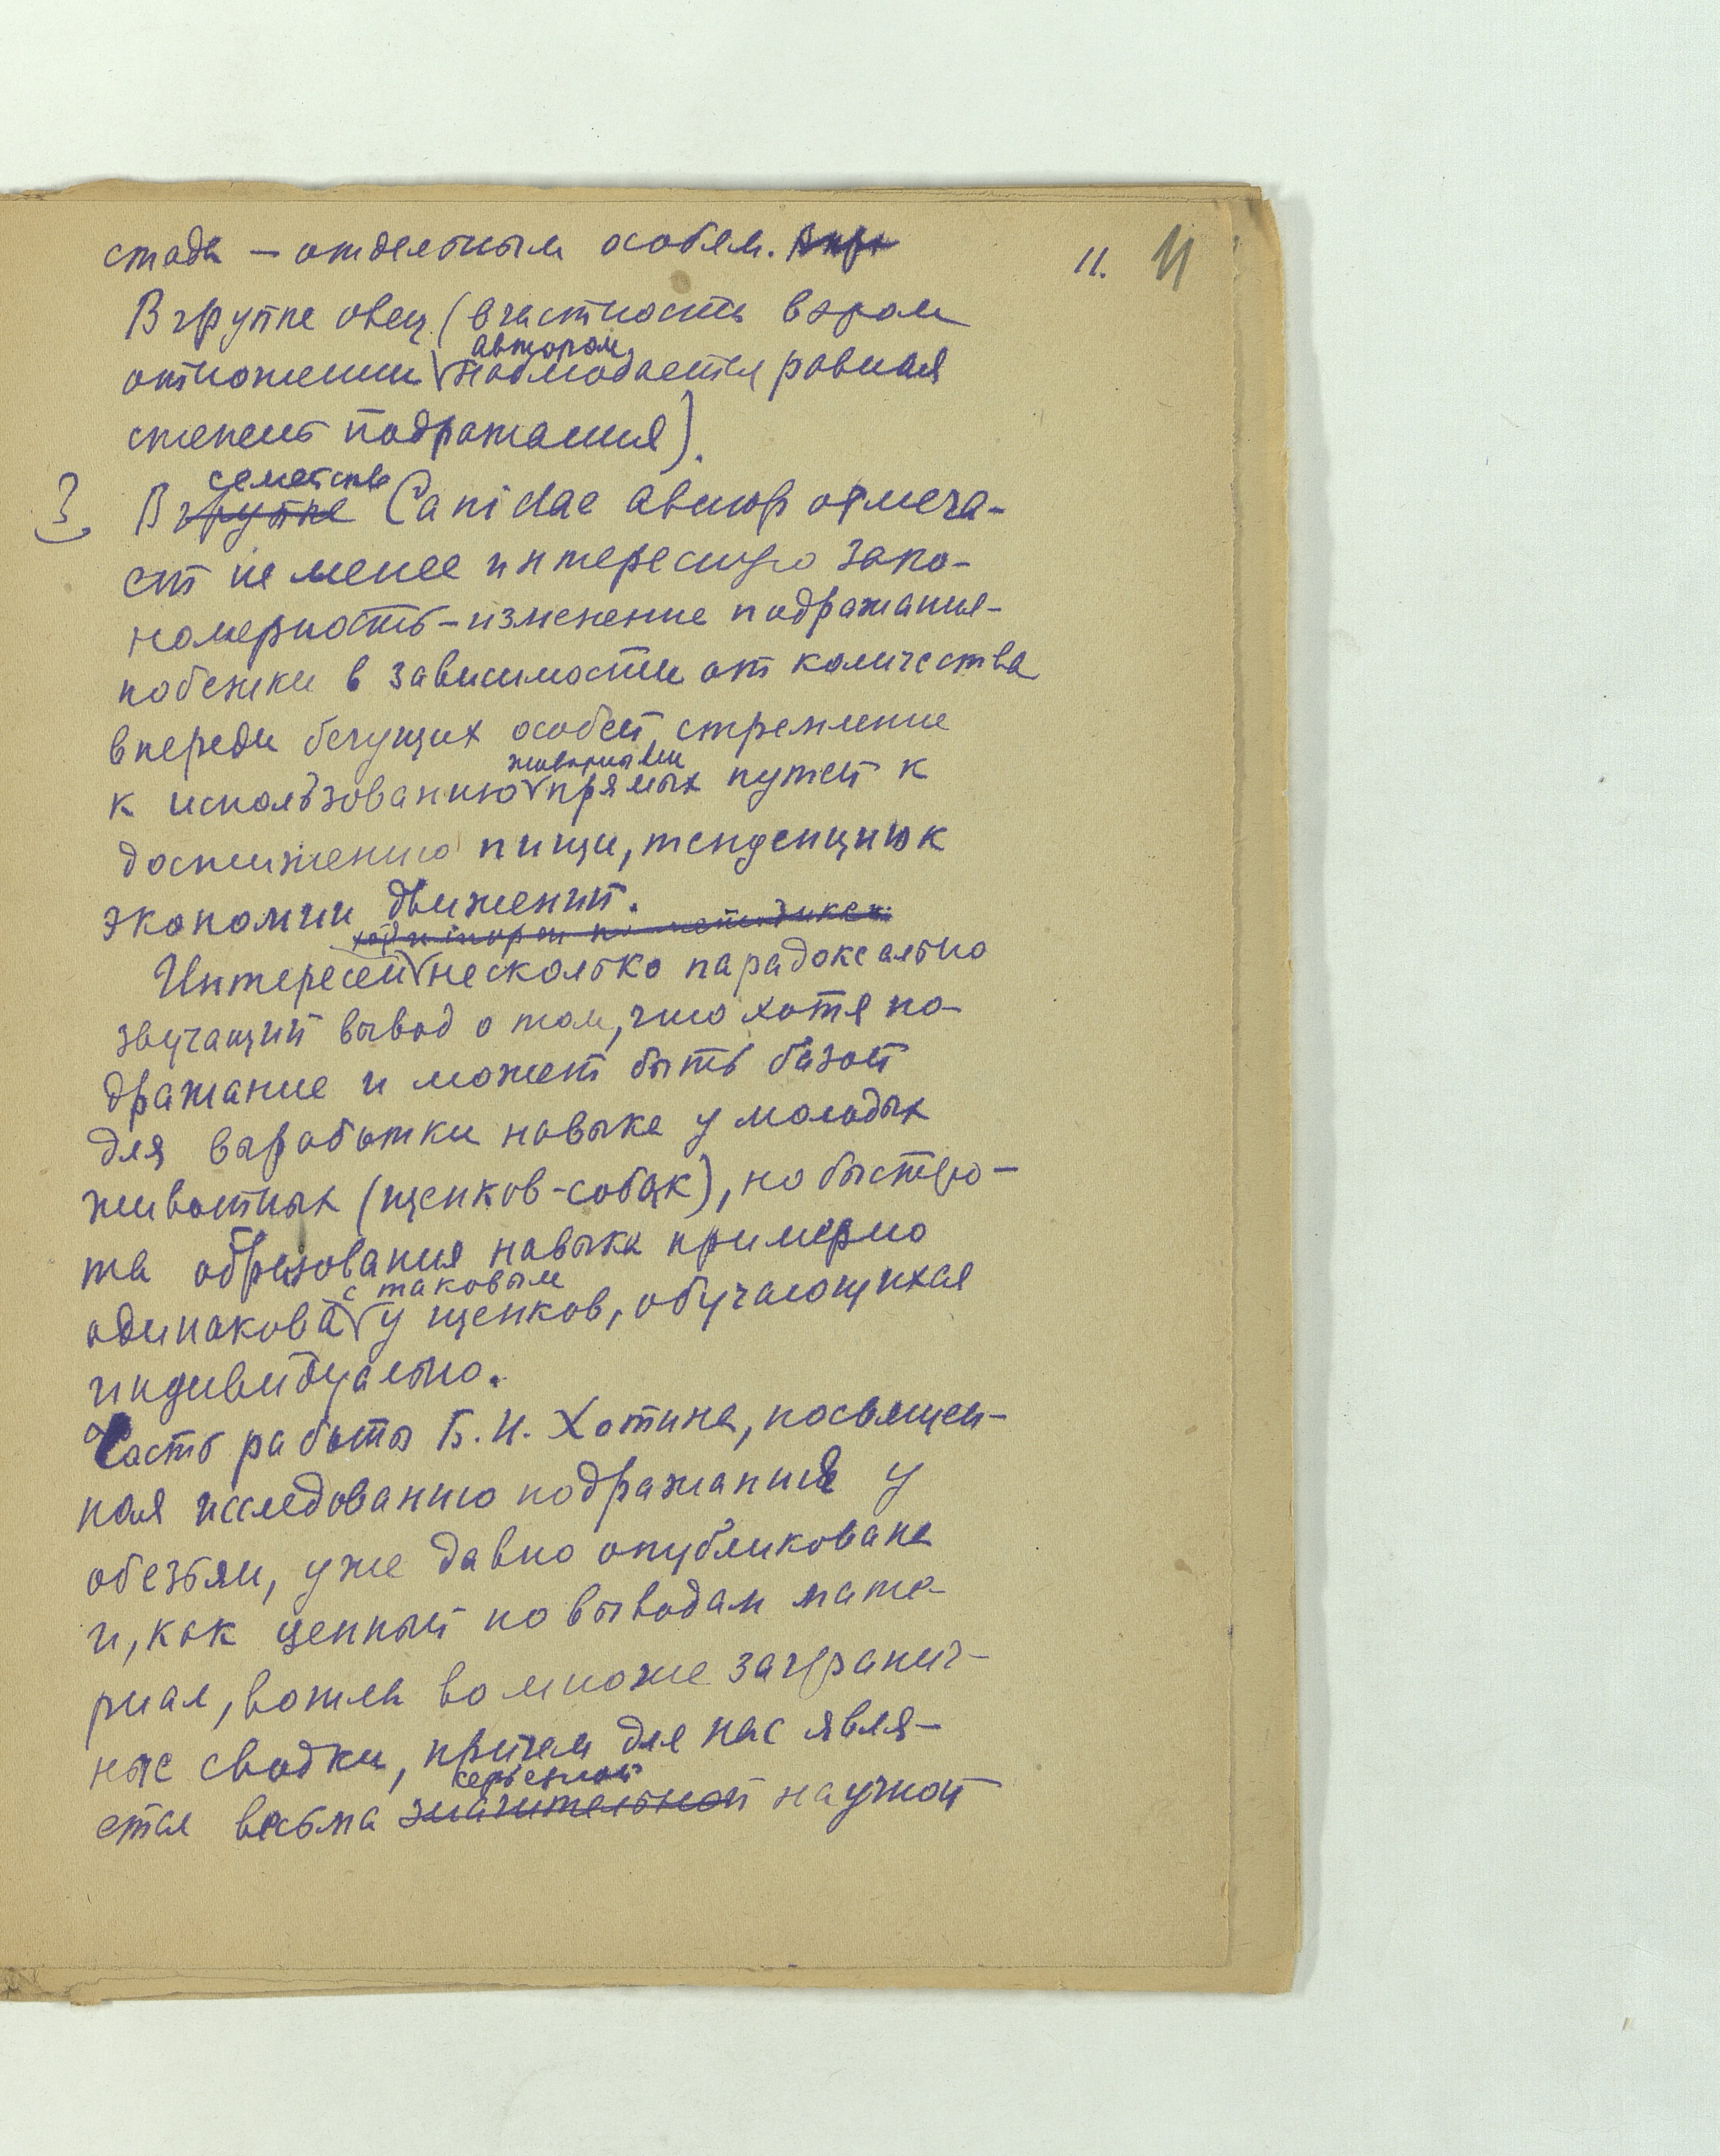 11. 11
стада — отдельным особям.
В группе овец (в частности в этом
автором
отношении наблюдается равная
степень подражания).
семействе
3 В группе Canidae автор отмеча-
ет не менее интересную зако-
номерность – изменение подражания-
побежки в зависимости от количества
впереди бегущих особей, стремление
животными
к использованию прямых путей к
достижению пищи, тенденцию к
экономии движений.
Интересен несколько парадоксально
звучащий вывод о том, что хотя по-
дражание и может быть базой
для выработки навыка у молодых
животных (щенков-собак), но быстро-
та образования навыка примерно
с таковым
одинакова у щенков, обучающихся
индивидуально.
Часть работы Б.И. Хотина, посвящен-
ная исследованию подражания у
обезьян, уже давно опубликована
и, как ценный по выводам мате-
риал, вошла во многие загранич-
ные сводки, причем для нас явля-
серьезной
ется весьма значительной научной